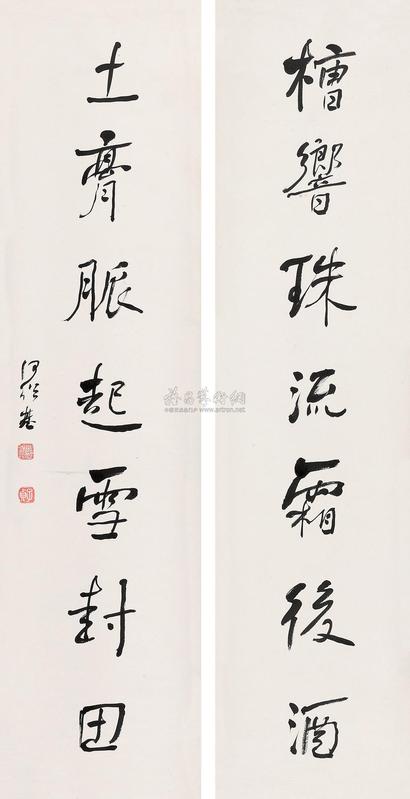 槽響珠流霜後酒
土膏脈起雪封田
何紹基
雅昌藝術網
www.artron.net